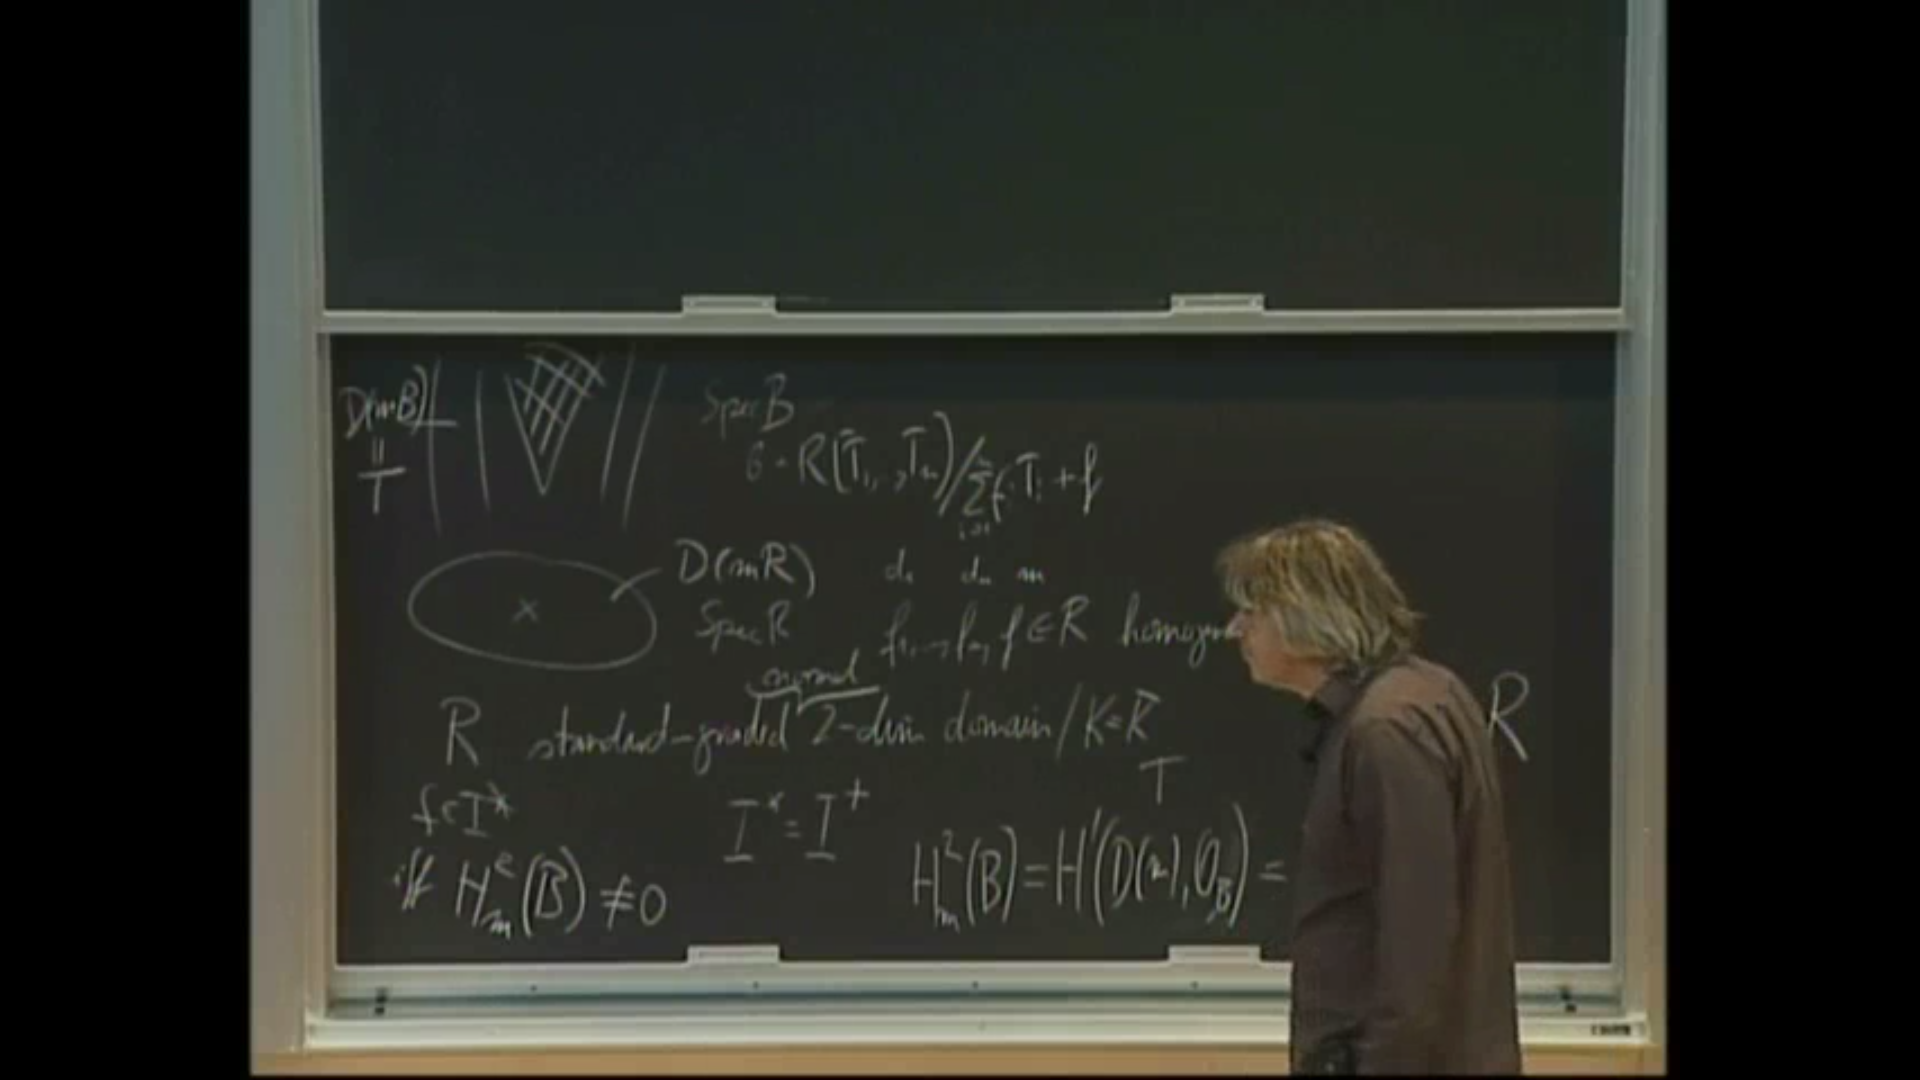 D(mB)
||
T
Spec B
B = R[T₁, .., Tₙ]/∑ᵢ₌₁ⁿ fᵢTᵢ + f
D(mR) d₁ dₙ m
Spec R f₁, .., fₙ, f ∈ R
normal
R standard-graded 2-dim domain / K = K̄
R
T
f ∈ I*
I* = I⁺
iff H²ₘ(B) ≠ 0
H²ₘ(B) = H¹(D(m), O_B) =